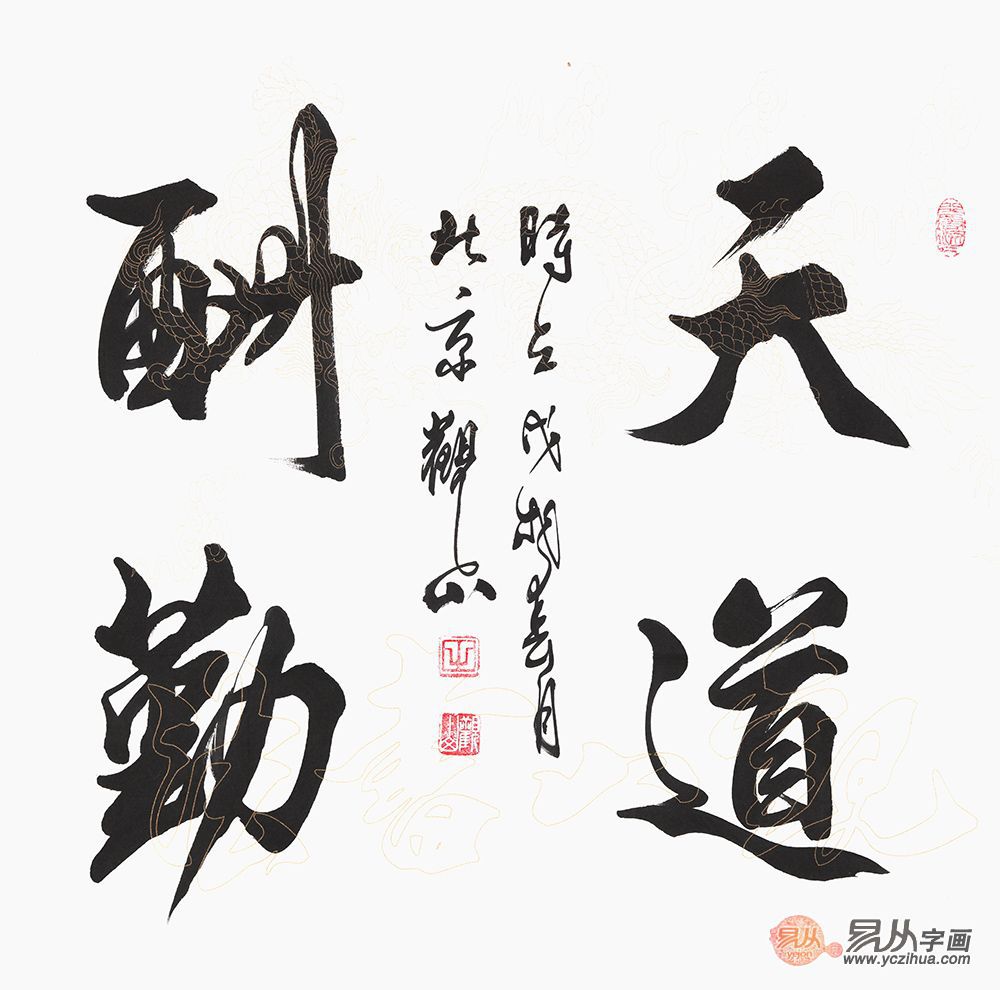 天道
時在戊戌春月
北京觀山
酬勤
易从
易从字画
www.yczihua.com